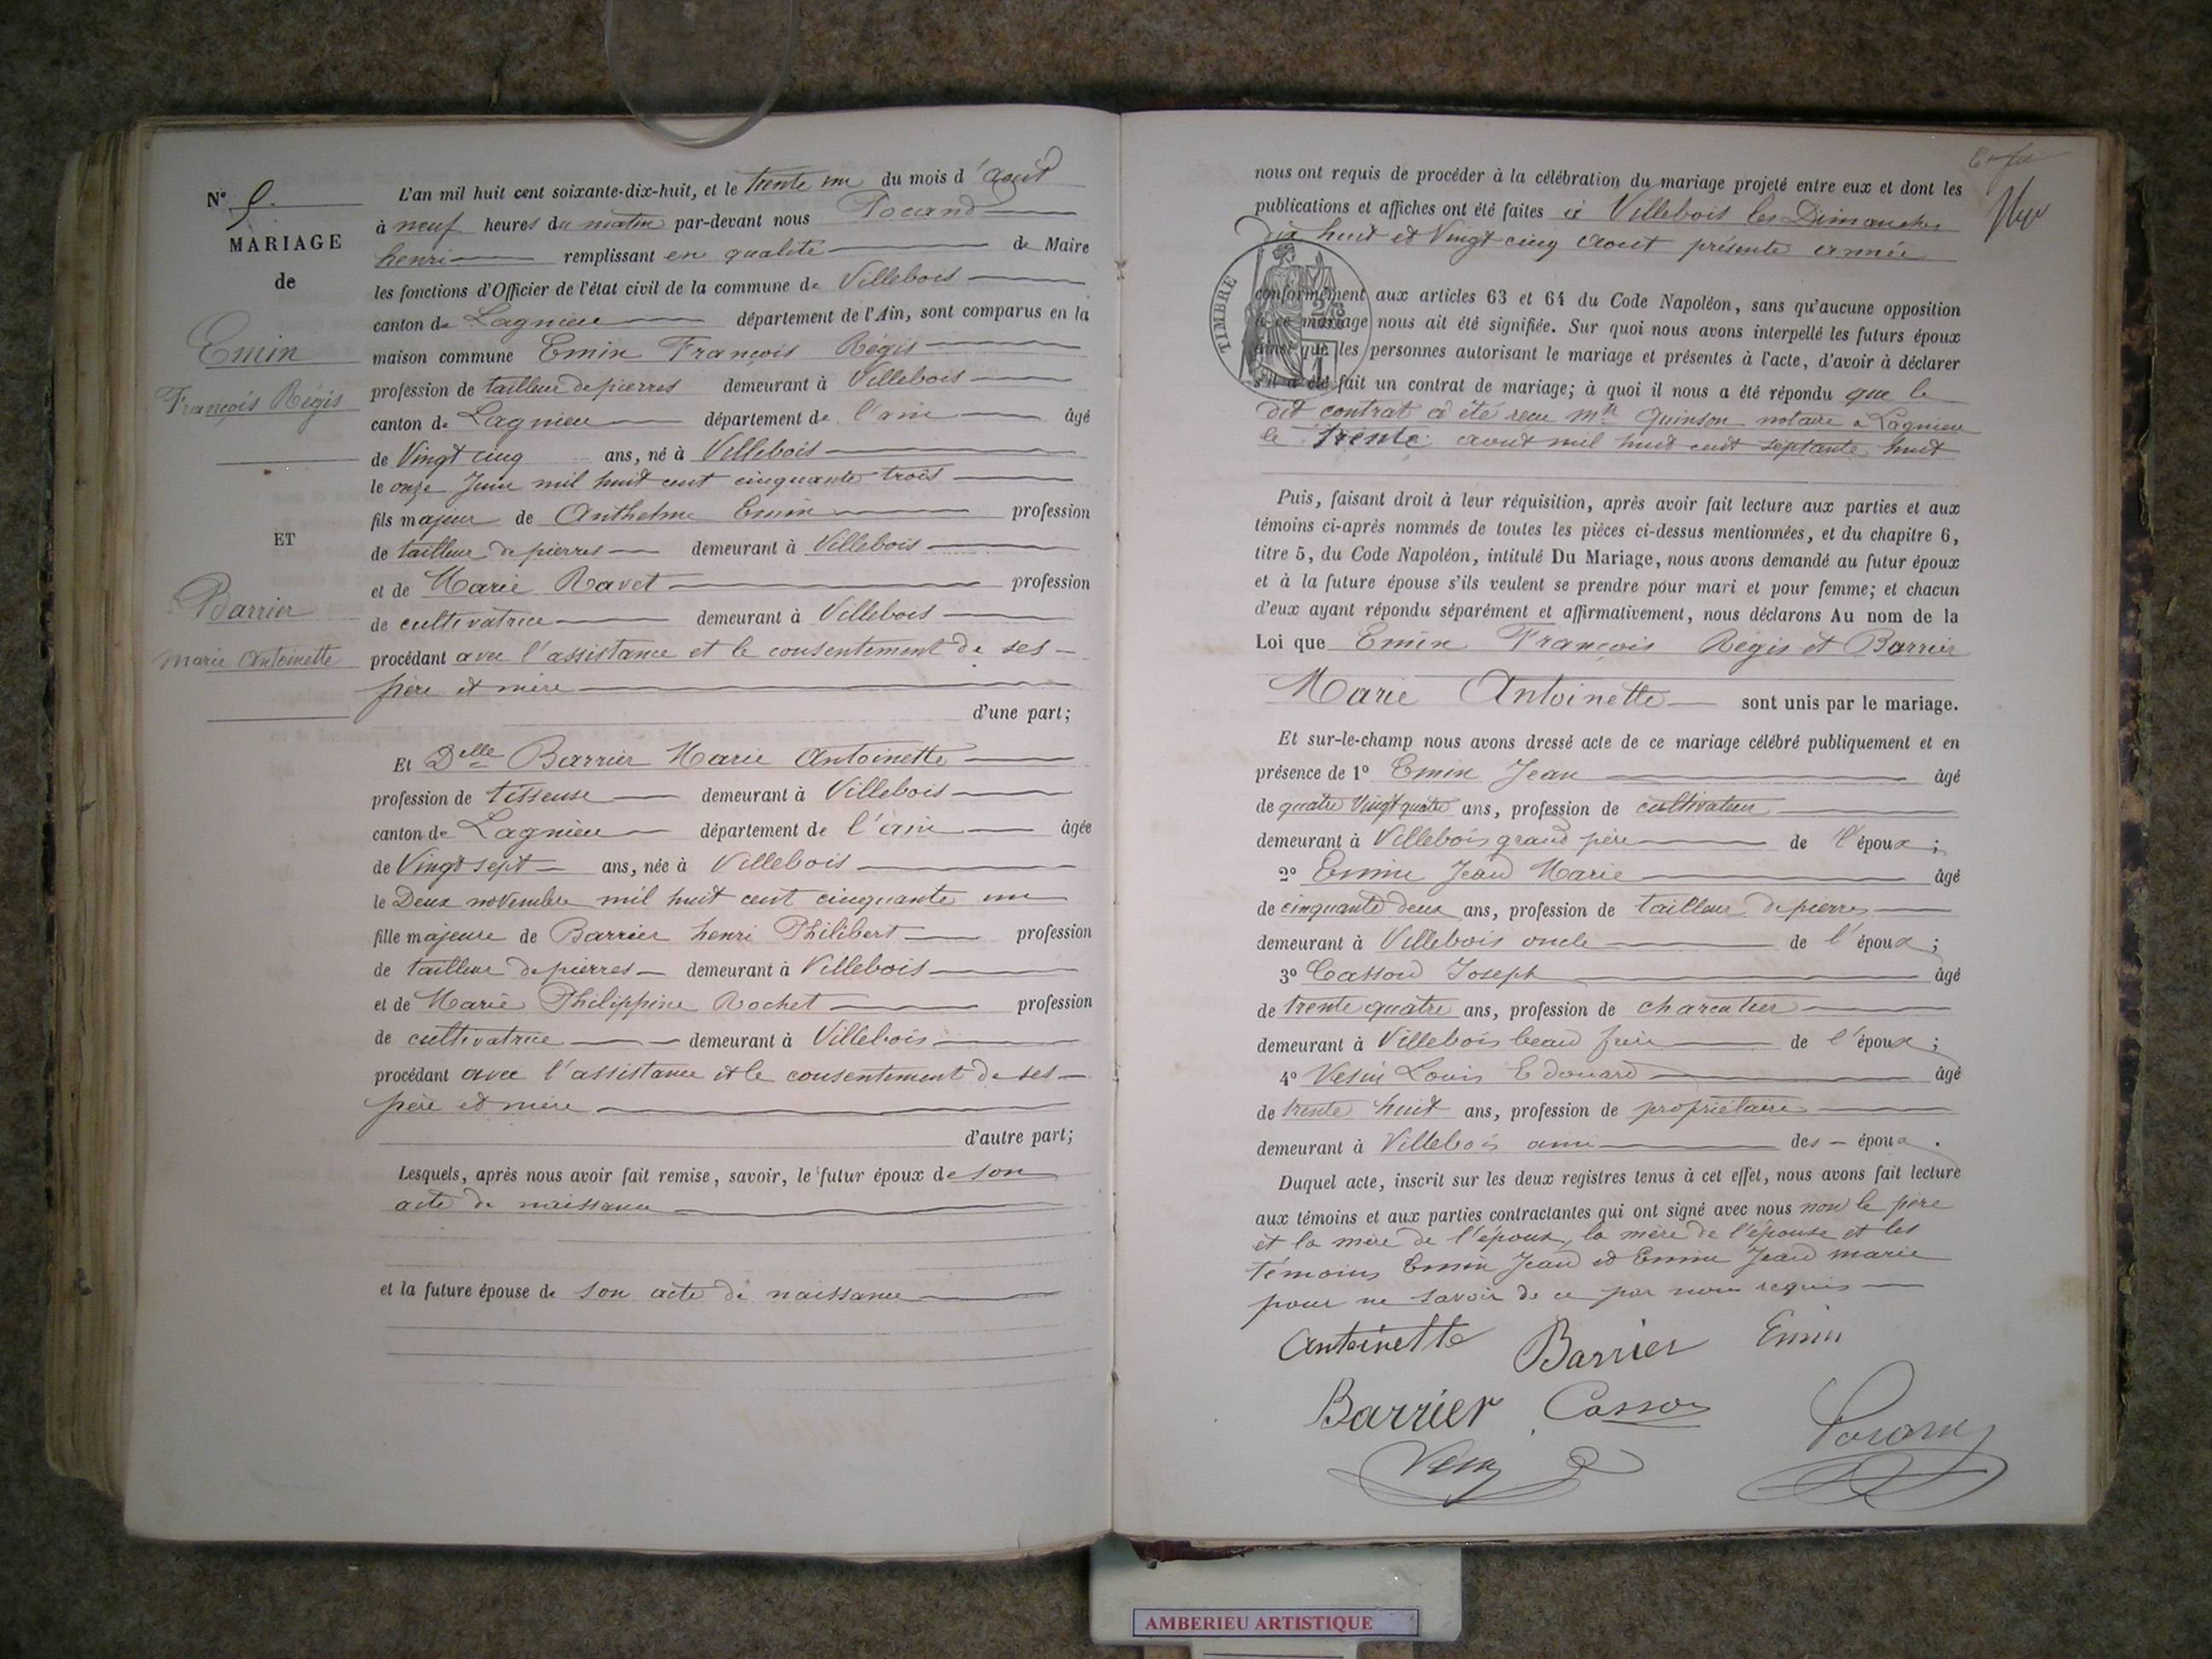 N° 9
MARIAGE
de
Emin
François Régis
ET
Barrier
Marie Antoinette
L'an mil huit cent soixante-dix-huit, et le trente un du mois d'aout
à neuf heures du matin par-devant nous Pocard
henri remplissant en qualité de Maire
les fonctions d'Officier de l'état civil de la commune de Villebois
canton de Lagnieu département de l'Ain, sont comparus en la
maison commune Emin François Régis
profession de tailleur de pierres demeurant à Villebois
canton de Lagnieu département de l'ain âgé
de Vingt cinq ans, né à Villebois
le onze Juin mil huit cent cinquante trois
fils majeur de Anthelme Emin profession
de tailleur de pierres demeurant à Villebois
et de Marie Ravet profession
de cultivatrice demeurant à Villebois
procédant avec l'assistance et le consentement de ses
père et mère
d'une part;
Et Delle Barrier Marie Antoinette
profession de tisseuse demeurant à Villebois
canton de Lagnieu département de l'ain âgée
de Vingt sept ans, née à Villebois
le Deux novembre mil huit cent cinquante un
fille majeure de Barrier henri Philibert profession
de tailleur de pierres demeurant à Villebois
et de Marie Philippine Rochet profession
de cultivatrice demeurant à Villebois
procédant avec l'assistance et le consentement de ses
père et mère
d'autre part;
Lesquels, après nous avoir fait remise, savoir, le futur époux de son
acte de naissance
et la future épouse de son acte de naissance
nous ont requis de procéder à la célébration du mariage projeté entre eux et dont les
publications et affiches ont été faites à Villebois les Dimanches
dix huit et Vingt cinq aout présente année
TIMBRE
conformément aux articles 63 et 64 du Code Napoléon, sans qu'aucune opposition
à ce mariage nous ait été signifiée. Sur quoi nous avons interpellé les futurs époux
ainsi que les personnes autorisant le mariage et présentes à l'acte, d'avoir à déclarer
s'il a été fait un contrat de mariage; à quoi il nous a été répondu que le
dit contrat a été recu Mtre Quinson notaire à Lagnieu
le trente aout mil huit cent septante huit
Puis, faisant droit à leur réquisition, après avoir fait lecture aux parties et aux
témoins ci-après nommés de toutes les pièces ci-dessus mentionnées, et du chapitre 6,
titre 5, du Code Napoléon, intitulé Du Mariage, nous avons demandé au futur époux
et à la future épouse s'ils veulent se prendre pour mari et pour femme; et chacun
d'eux ayant répondu séparément et affirmativement, nous déclarons Au nom de la
Loi que Emin François Régis et Barrier
Marie Antoinette sont unis par le mariage.
Et sur-le-champ nous avons dressé acte de ce mariage célébré publiquement et en
présence de 1° Emin Jean âgé
de quatre Vingt quatre ans, profession de cultivateur
demeurant à Villebois grand père de l'époux;
2° Emin Jean Marie âgé
de cinquante deux ans, profession de tailleur de pierres
demeurant à Villebois oncle de l'époux;
3° Casson Joseph âgé
de trente quatre ans, profession de charcutier
demeurant à Villebois beau frère de l'époux;
4° Vesin Louis Edouard âgé
de trente huit ans, profession de propriétaire
demeurant à Villebois ami des époux.
Duquel acte, inscrit sur les deux registres tenus à cet effet, nous avons fait lecture
aux témoins et aux parties contractantes qui ont signé avec nous non le père
et la mère de l'époux, la mère de l'épouse et les
témoins Emin Jean et Emin Jean marie
pour ne savoir de ce par nous requis
Antoinette Barrier Emin
Barrier Casson
AMBERIEU ARTISTIQUE